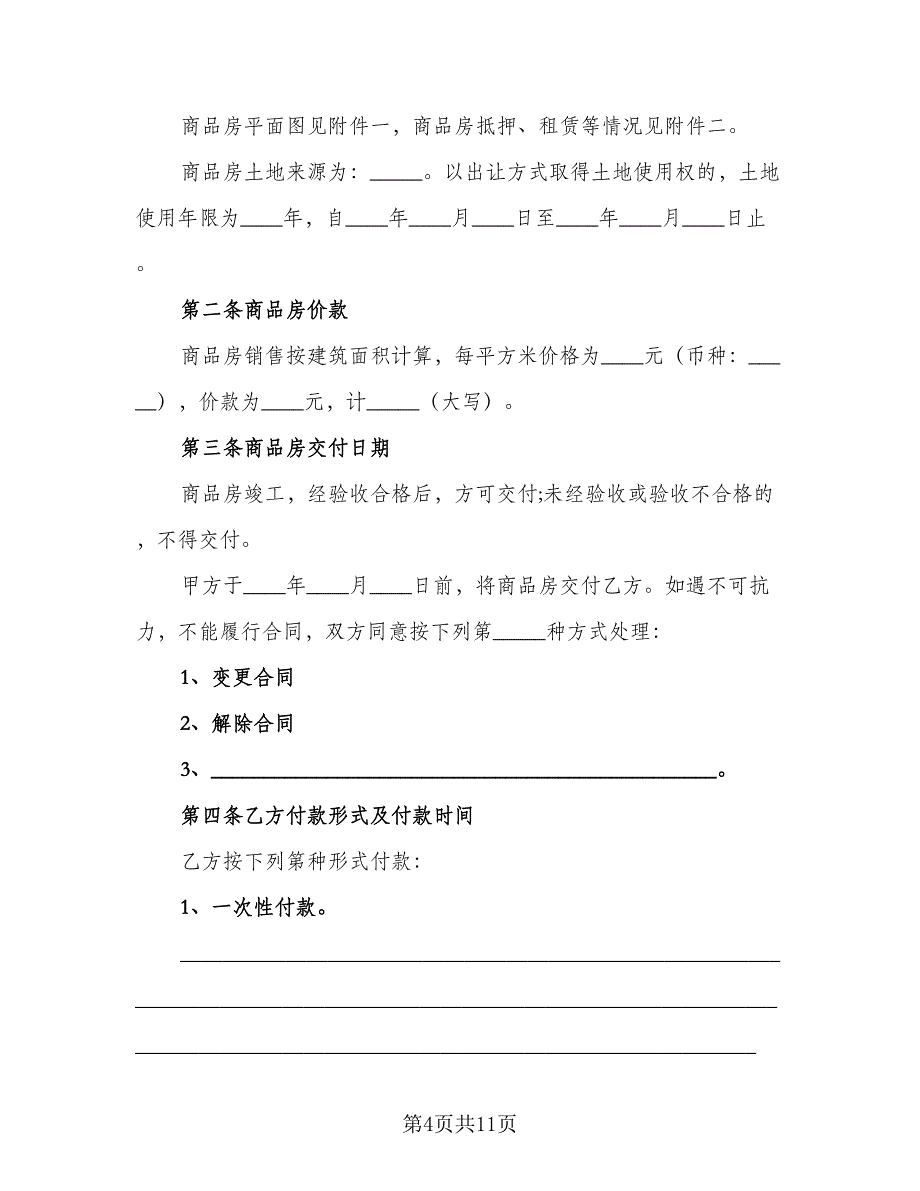 商品房平面图见附件一，商品房抵押、租赁等情况见附件二。
商品房土地来源为：_____。以出让方式取得土地使用权的，土地
使用年限为____年，自____年____月____日至____年____月____日止
。
第二条商品房价款
商品房销售按建筑面积计算，每平方米价格为____元（币种：___
__），价款为____元，计_____（大写）。
第三条商品房交付日期
商品房竣工，经验收合格后，方可交付;未经验收或验收不合格的
，不得交付。
甲方于____年____月____日前，将商品房交付乙方。如遇不可抗
力，不能履行合同，双方同意按下列第_____种方式处理：
1、变更合同
2、解除合同
3、________________________________________________。
第四条乙方付款形式及付款时间
乙方按下列第种形式付款：
1、一次性付款。
_________________________________________________________
_____________________________________________________________
___________________________________________________________
第4页共11页